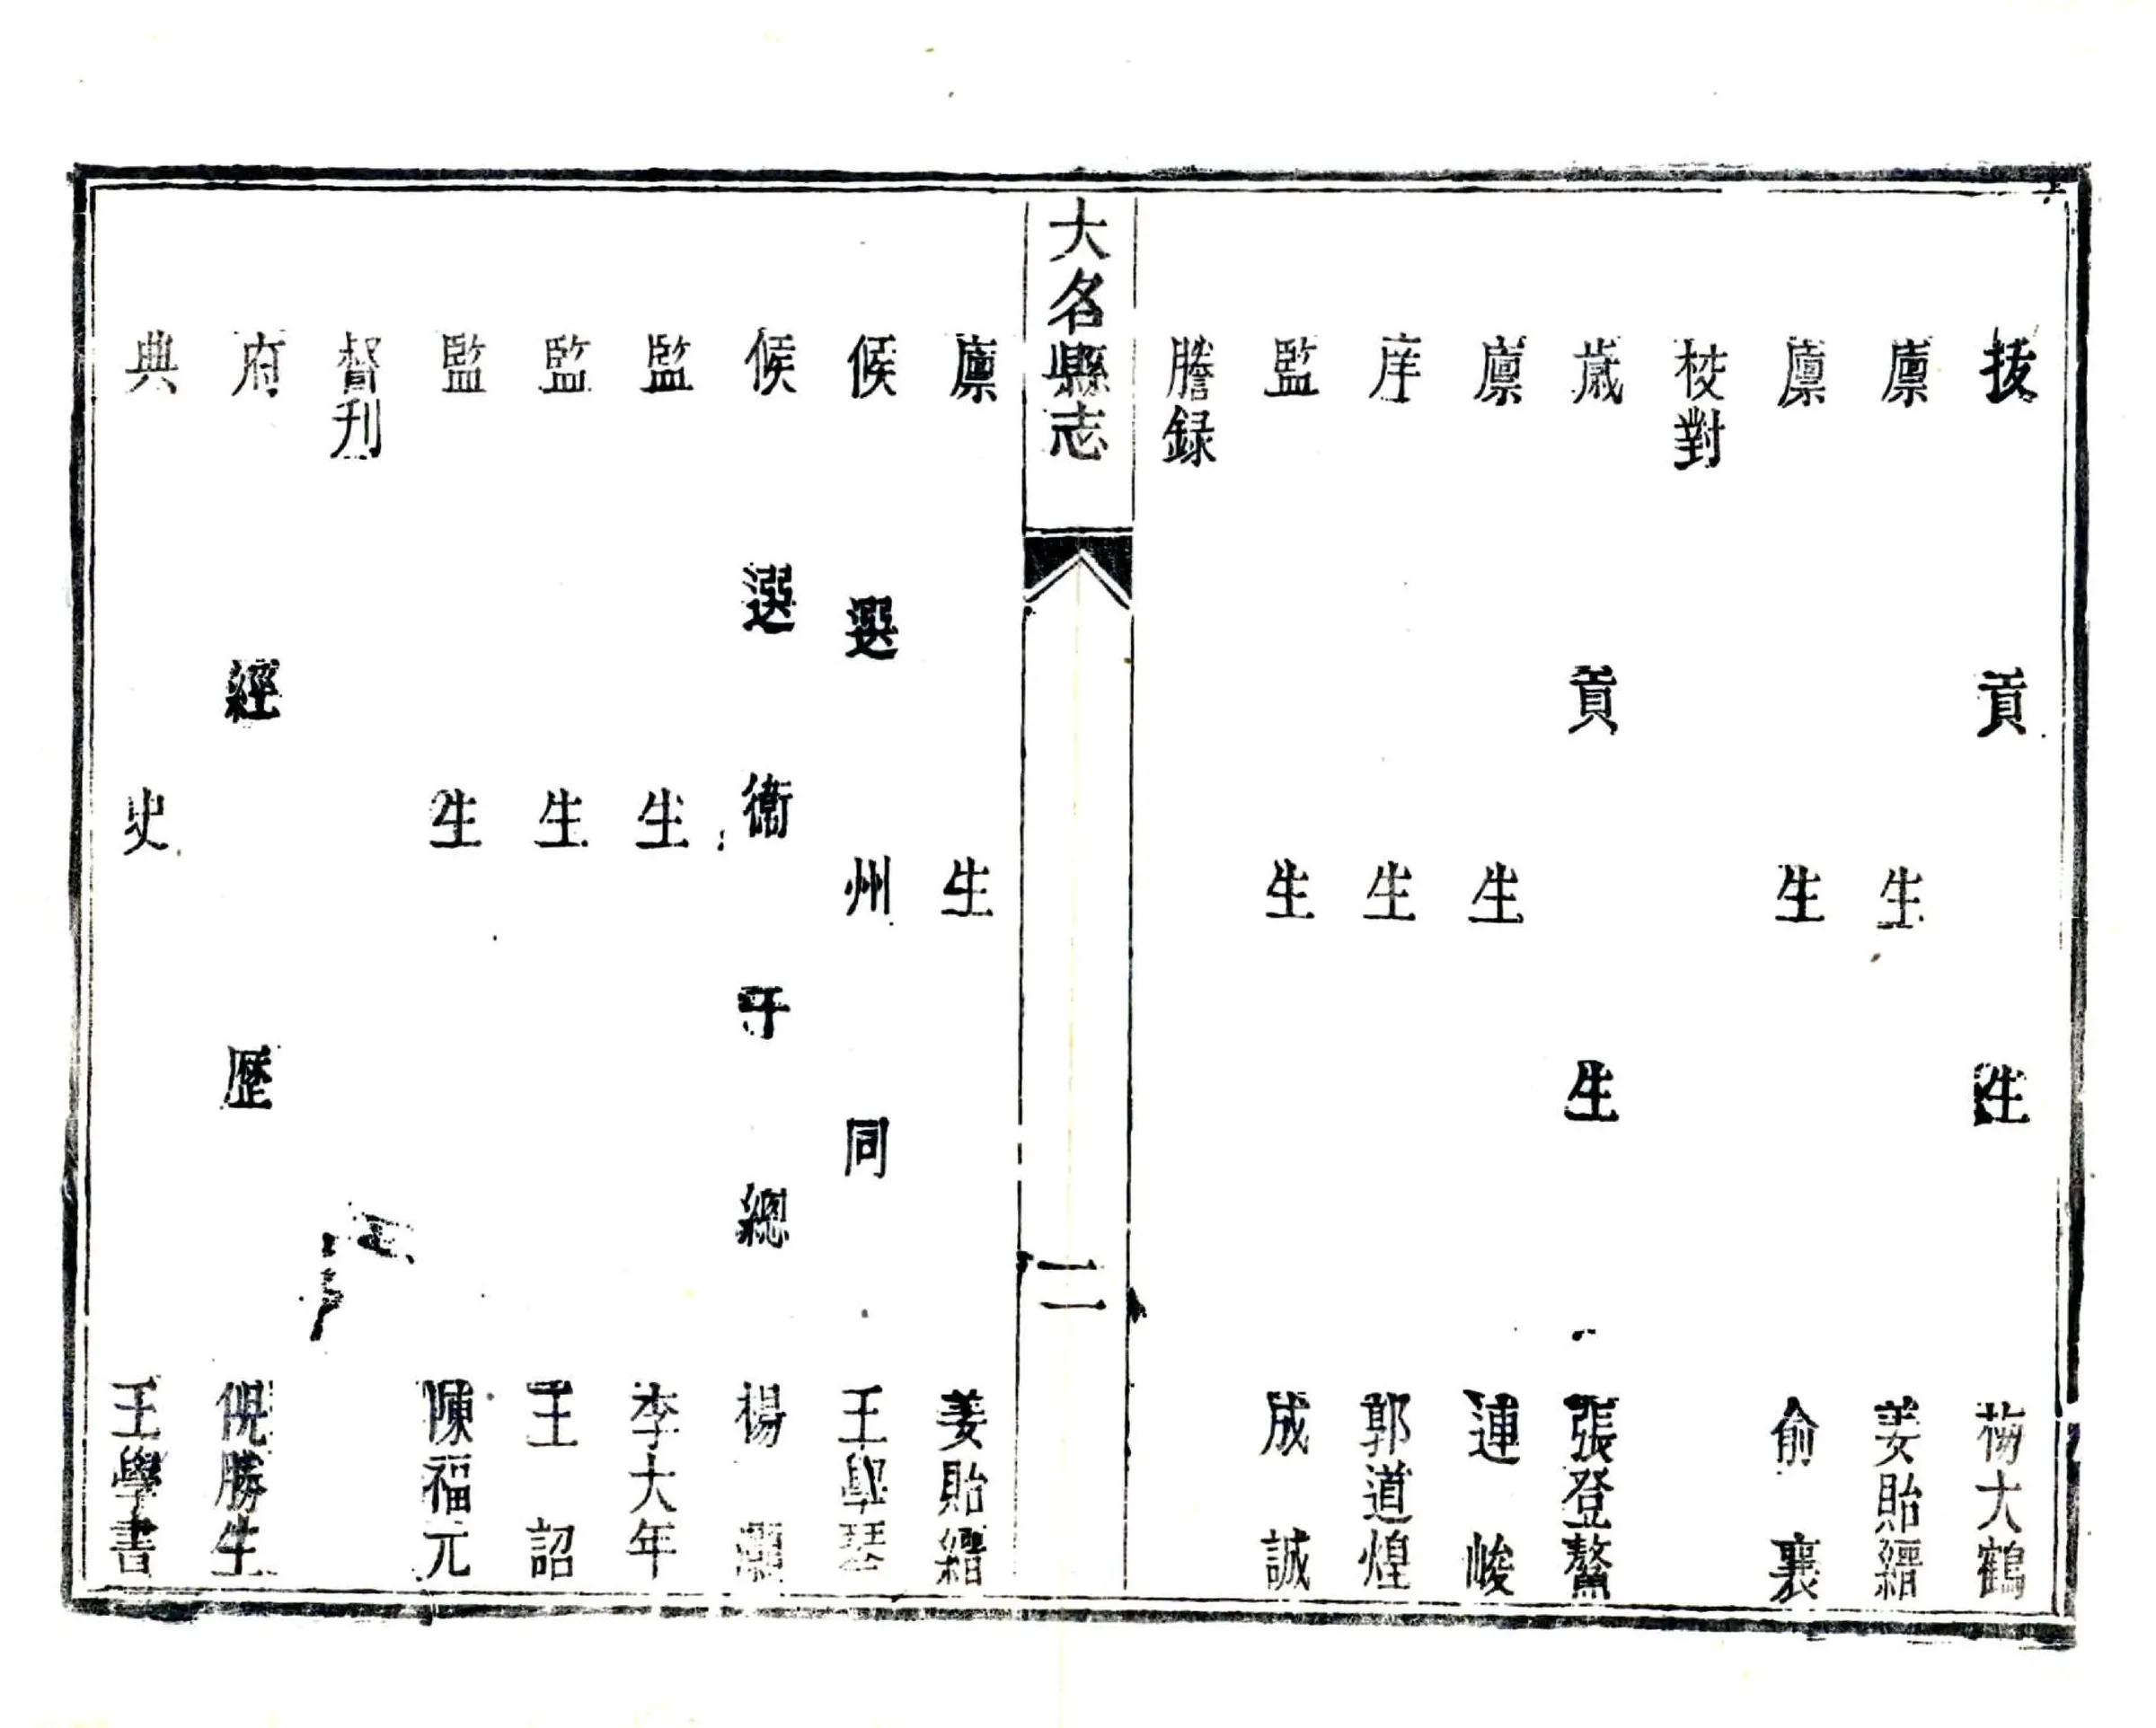 拔貢生梅大鶴
廪生姜貽縉
廪生俞襄
校對
歲貢生張登鰲
廪生連峻
庠生郭道煌
監生成誠
謄録
大名縣志
二
廪生姜貽縉
候選州同王學琴
候選衞千總楊灝
監生李大年
監生王詔
監生陳福元
督刊
府經歷倪勝生
典史王學書